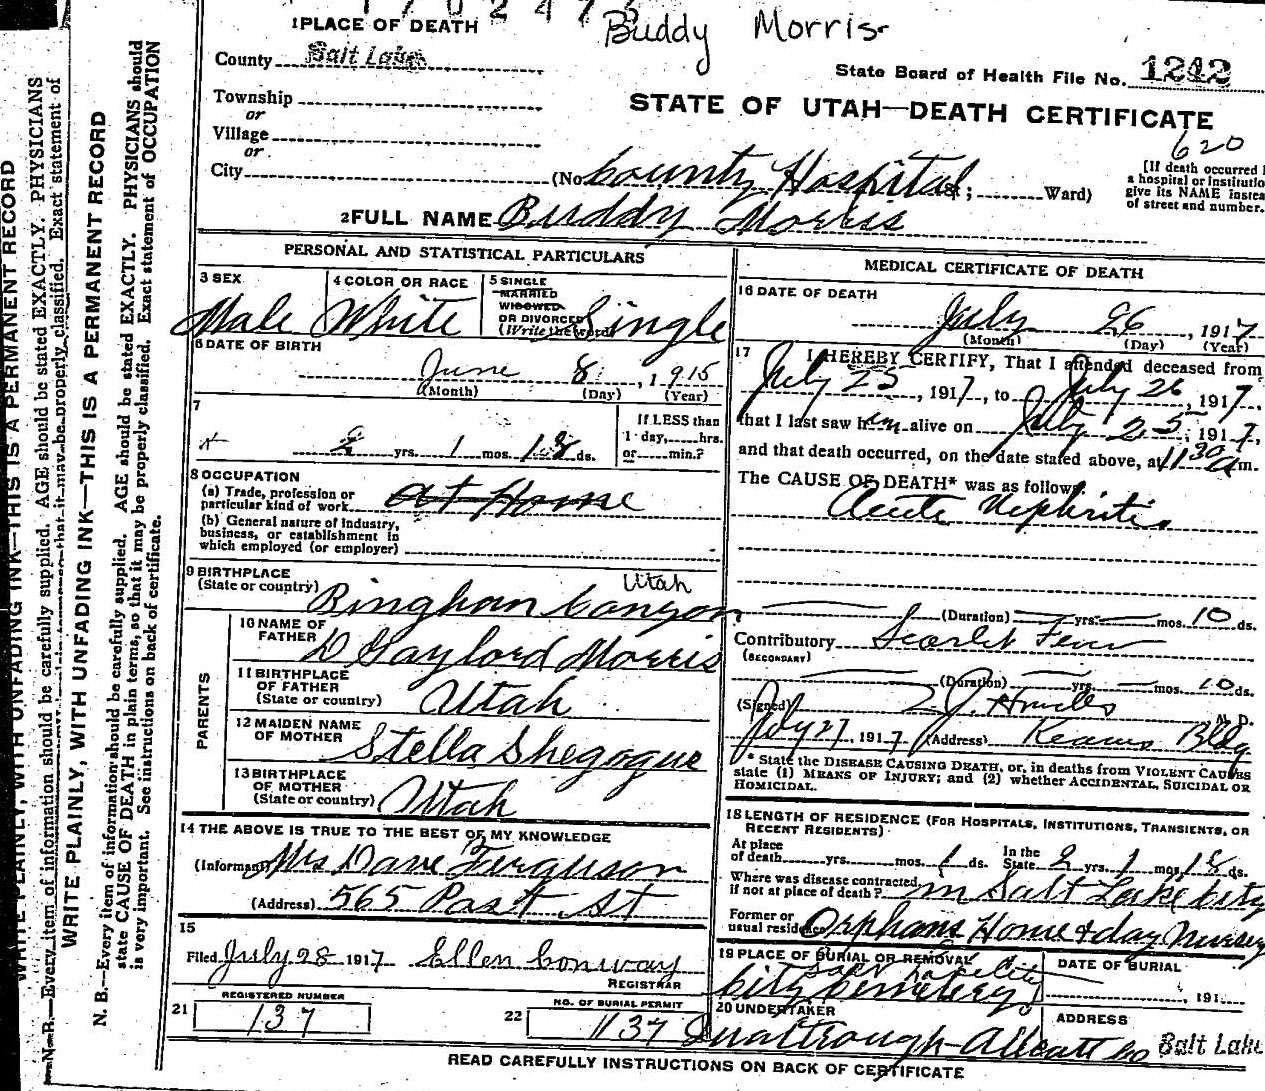 Buddy Morris
1 PLACE OF DEATH
County Salt Lake
State Board of Health File No. 1242
Township
or
Village
or
City
STATE OF UTAH—DEATH CERTIFICATE
620
(No County Hospital St; Ward)
[If death occurred
a hospital or institutio
give its NAME instea
of street and number.
2 FULL NAME Buddy Morris
PERSONAL AND STATISTICAL PARTICULARS
3 SEX
Male
4 COLOR OR RACE
White
5 SINGLE
MARRIED
WIDOWED
OR DIVORCED
(Write the word)
Single
6 DATE OF BIRTH
June 8, 1915
(Month) (Day) (Year)
7
2 yrs. 1 mos. 18 ds.
If LESS than
1 day, hrs.
or min.?
8 OCCUPATION
(a) Trade, profession or
particular kind of work At Home
(b) General nature of industry,
business, or establishment in
which employed (or employer)
9 BIRTHPLACE
(State or country) Bingham Canyon Utah
PARENTS
10 NAME OF
FATHER D Gaylord Morris
11 BIRTHPLACE
OF FATHER
(State or country) Utah
12 MAIDEN NAME
OF MOTHER Stella Shegogue
13 BIRTHPLACE
OF MOTHER
(State or country) Utah
14 THE ABOVE IS TRUE TO THE BEST OF MY KNOWLEDGE
(Informant) Mrs Dave Ferguson
(Address) 565 Post St
15
Filed July 28 1917 Ellen Conway
REGISTRAR
21
REGISTERED NUMBER
137
22
NO. OF BURIAL PERMIT
1137
MEDICAL CERTIFICATE OF DEATH
16 DATE OF DEATH
July 26, 1917
(Month) (Day) (Year)
17 I HEREBY CERTIFY, That I attended deceased from
July 25, 1917, to July 26, 1917.
that I last saw him alive on July 25, 1917,
and that death occurred, on the date stated above, at 11 30 a m.
The CAUSE OF DEATH* was as follows:
Acute Nephritis
(Duration) yrs. mos. 10 ds.
Contributory Scarlet Fever
(SECONDARY)
(Duration) yrs. mos. 10 ds.
(Signed) M. D.
July 27, 1917 (Address) Kearns Bldg
* State the DISEASE CAUSING DEATH, or, in deaths from VIOLENT CAUSES
state (1) MEANS OF INJURY; and (2) whether ACCIDENTAL, SUICIDAL OR
HOMICIDAL.
18 LENGTH OF RESIDENCE (FOR HOSPITALS, INSTITUTIONS, TRANSIENTS, OR
RECENT RESIDENTS)
At place
of death yrs. mos. 1 ds.
In the
State 2 yrs. 1 mos. 18 ds.
Where was disease contracted,
if not at place of death? in Salt Lake City
Former or
usual residence Orphans Home & day Nursery
19 PLACE OF BURIAL OR REMOVAL
Salt Lake City
City Cemetery
DATE OF BURIAL
, 191
20 UNDERTAKER
ADDRESS
Salt Lake
READ CAREFULLY INSTRUCTIONS ON BACK OF CERTIFICATE
WRITE PLAINLY, WITH UNFADING INK—THIS IS A PERMANENT RECORD
N. B.—Every item of information should be carefully supplied. AGE should be stated EXACTLY. PHYSICIANS should
state CAUSE OF DEATH in plain terms, so that it may be properly classified. Exact statement of OCCUPATION
is very important. See instructions on back of certificate.
WRITE PLAINLY, WITH UNFADING INK—THIS IS A PERMANENT RECORD
N. B.—Every item of information should be carefully supplied. AGE should be stated EXACTLY. PHYSICIANS
that it may be properly classified. Exact statement of